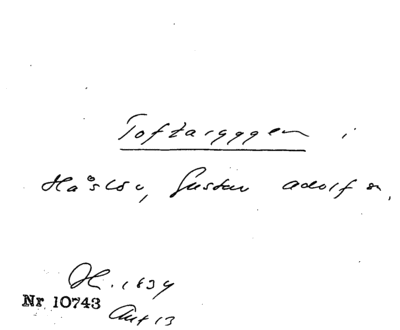 Toftargggen i
Håslöv, Gustav Adolf sn.
H. 1834
Nr 10743
Ant 13